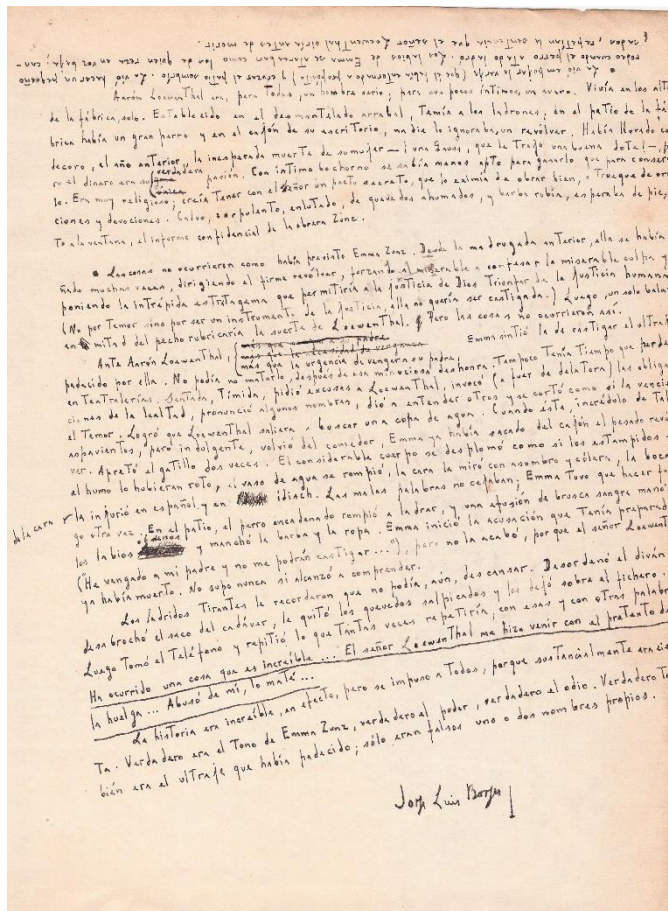 La vio empujar la verja (que él había entornado a propósito) y cruzar el patio sombrío. La vio hacer un pequeño
rodeo cuando el perro atado ladró. Los labios de Emma se atareaban como los de quien reza en voz baja; can-
sados, repetían la sentencia que el señor Loewenthal oiría antes de morir.
Aarón Loewenthal era, para todos, un hombre serio; para sus pocos íntimos, un avaro. Vivía en los alt
de la fábrica, solo. Establecido en el desmantelado arrabal, temía a los ladrones; en el patio de la fá
brica había un gran perro y en el cajón de su escritorio, nadie lo ignoraba, un revólver. Había llorado con
decoro, el año anterior, la inesperada muerte de su mujer — ¡una Gauss, que le trajo una buena dote! —, pe
ro el dinero era su verdadera pasión. Con íntimo bochorno se sabía menos apto para ganarlo que para conser
lo. Era muy religioso; creía tener con el Señor un pacto secreto, que lo eximía de obrar bien, a trueque de ora
ciones y devociones. Calvo, corpulento, enlutado, de quevedos ahumados, y barba rubia, esperaba de pie,
to a la ventana, el informe confidencial de la obrera Zunz.
Las cosas no ocurrieron como había previsto Emma Zunz. Desde la madrugada anterior, ella se había
ñado muchas veces, dirigiendo el firme revólver, forzando al miserable a confesar la miserable culpa y
poniendo la intrépida estratagema que permitiría a la Justicia de Dios triunfar de la justicia humana
(No por temor sino por ser un instrumento de la Justicia, ella no quería ser castigada.) Luego, un solo bala
en mitad del pecho rubricaría la suerte de Loewenthal. Pero las cosas no ocurrieron así.
más que a su padre
más que la necesidad de venganza
Ante Aarón Loewenthal, más que la urgencia de vengar a su padre, Emma sintió la de castigar el ultra
padecido por ella. No podía no matarlo, después de esa minuciosa deshonra. Tampoco tenía tiempo que perde
en teatralerías. Sentada, tímida, pidió excusas a Loewenthal, invocó (a fuer de delatora) las obliga
ciones de la lealtad, pronunció algunos nombres, dió a entender otros y se cortó como si la venci
el temor. Logró que Loewenthal saliera a buscar una copa de agua. Cuando éste, incrédulo de tal
aspavientos, pero indulgente, volvió del comedor, Emma ya había sacado del cajón el pesado revó
ver. Apretó el gatillo dos veces. El considerable cuerpo se desplomó como si los estampidos
el humo lo hubieran roto, el vaso de agua se rompió, la cara lo miró con asombro y cólera, la boca
de la cara la injurió en español y en idisch. Las malas palabras no cejaban; Emma tuvo que hacer fue
go otra vez. En el patio, el perro encadenado rompió a ladrar, y una efusión de brusca sangre manó
los labios obscenos y manchó la barba y la ropa. Emma inició la acusación que tenía preparad
(He vengado a mi padre y no me podrán castigar...), pero no la acabó, porque el señor Loewent
ya había muerto. No supo nunca si alcanzó a comprender.
Los ladridos tirantes le recordaron que no podía, aún, descansar. Desordenó el diván
desabrochó el saco del cadáver, le quitó los quevedos salpicados y los dejó sobre el fichero.
Luego tomó el teléfono y repitió lo que tantas veces repetiría, con esas y con otras palabr
Ha ocurrido una cosa que es increíble... El señor Loewenthal me hizo venir con el pretexto de
la huelga... Abusó de mí, lo maté...
La historia era increíble, en efecto, pero se impuso a todos, porque sustancialmente era cie
ta. Verdadero era el tono de Emma Zunz, verdadero el pudor, verdadero el odio. Verdadero ta
bién era el ultraje que había padecido; sólo eran falsos uno o dos nombres propios.
Jorge Luis Borges